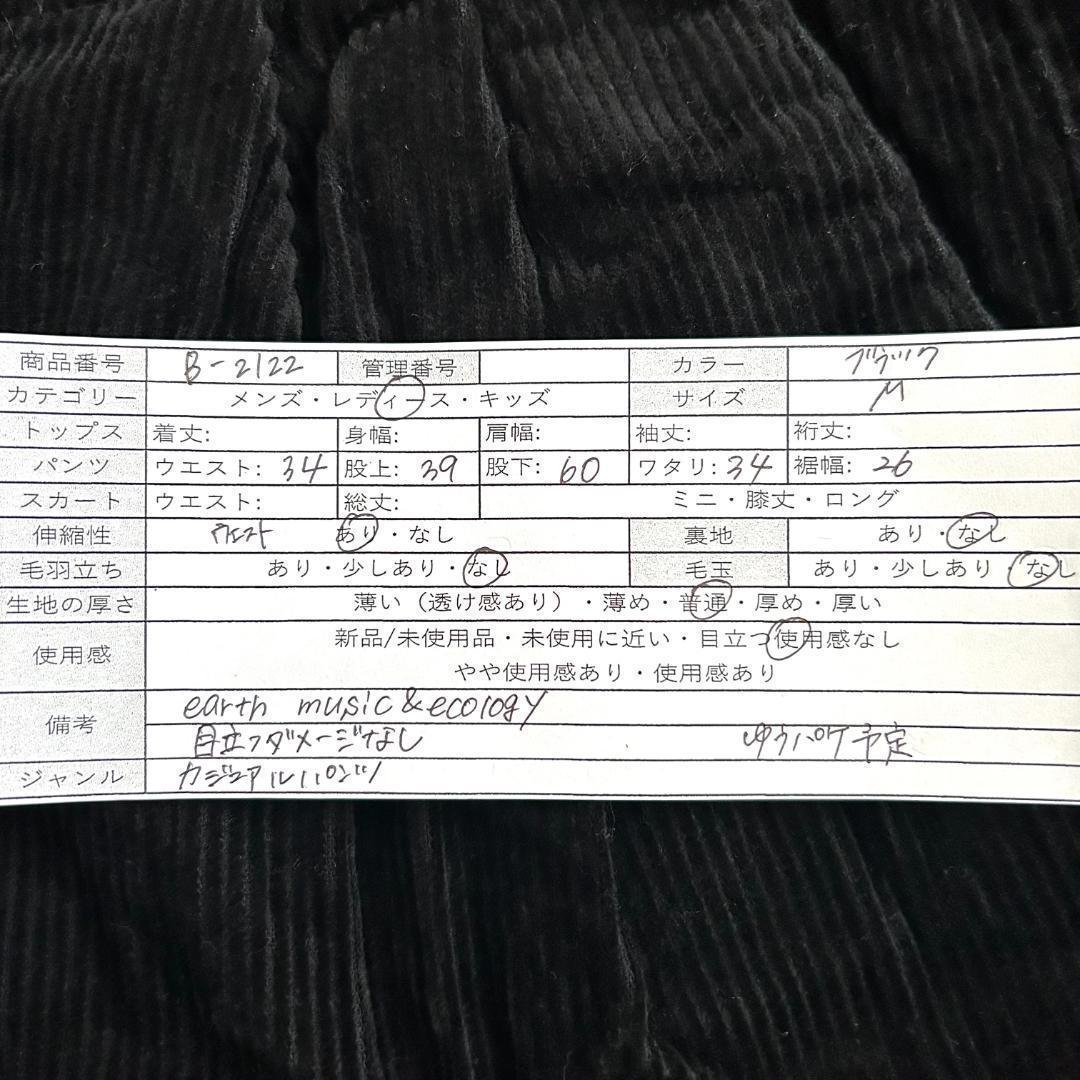 商品番号 B-2122 管理番号 カラー ブラック
カテゴリー メンズ・レディース・キッズ サイズ M
トップス 着丈: 身幅: 肩幅: 袖丈: 裄丈:
パンツ ウエスト: 34 股上: 39 股下: 60 ワタリ: 34 裾幅: 26
スカート ウエスト: 総丈: ミニ・膝丈・ロング
伸縮性 ウエスト あり・なし 裏地 あり・なし
毛羽立ち あり・少しあり・なし 毛玉 あり・少しあり・なし
生地の厚さ 薄い（透け感あり）・薄め・普通・厚め・厚い
使用感 新品/未使用品・未使用に近い・目立つ使用感なし
やや使用感あり・使用感あり
備考 earth music&ecology
目立つダメージなし ゆうパケ予定
ジャンル カジュアルパンツ